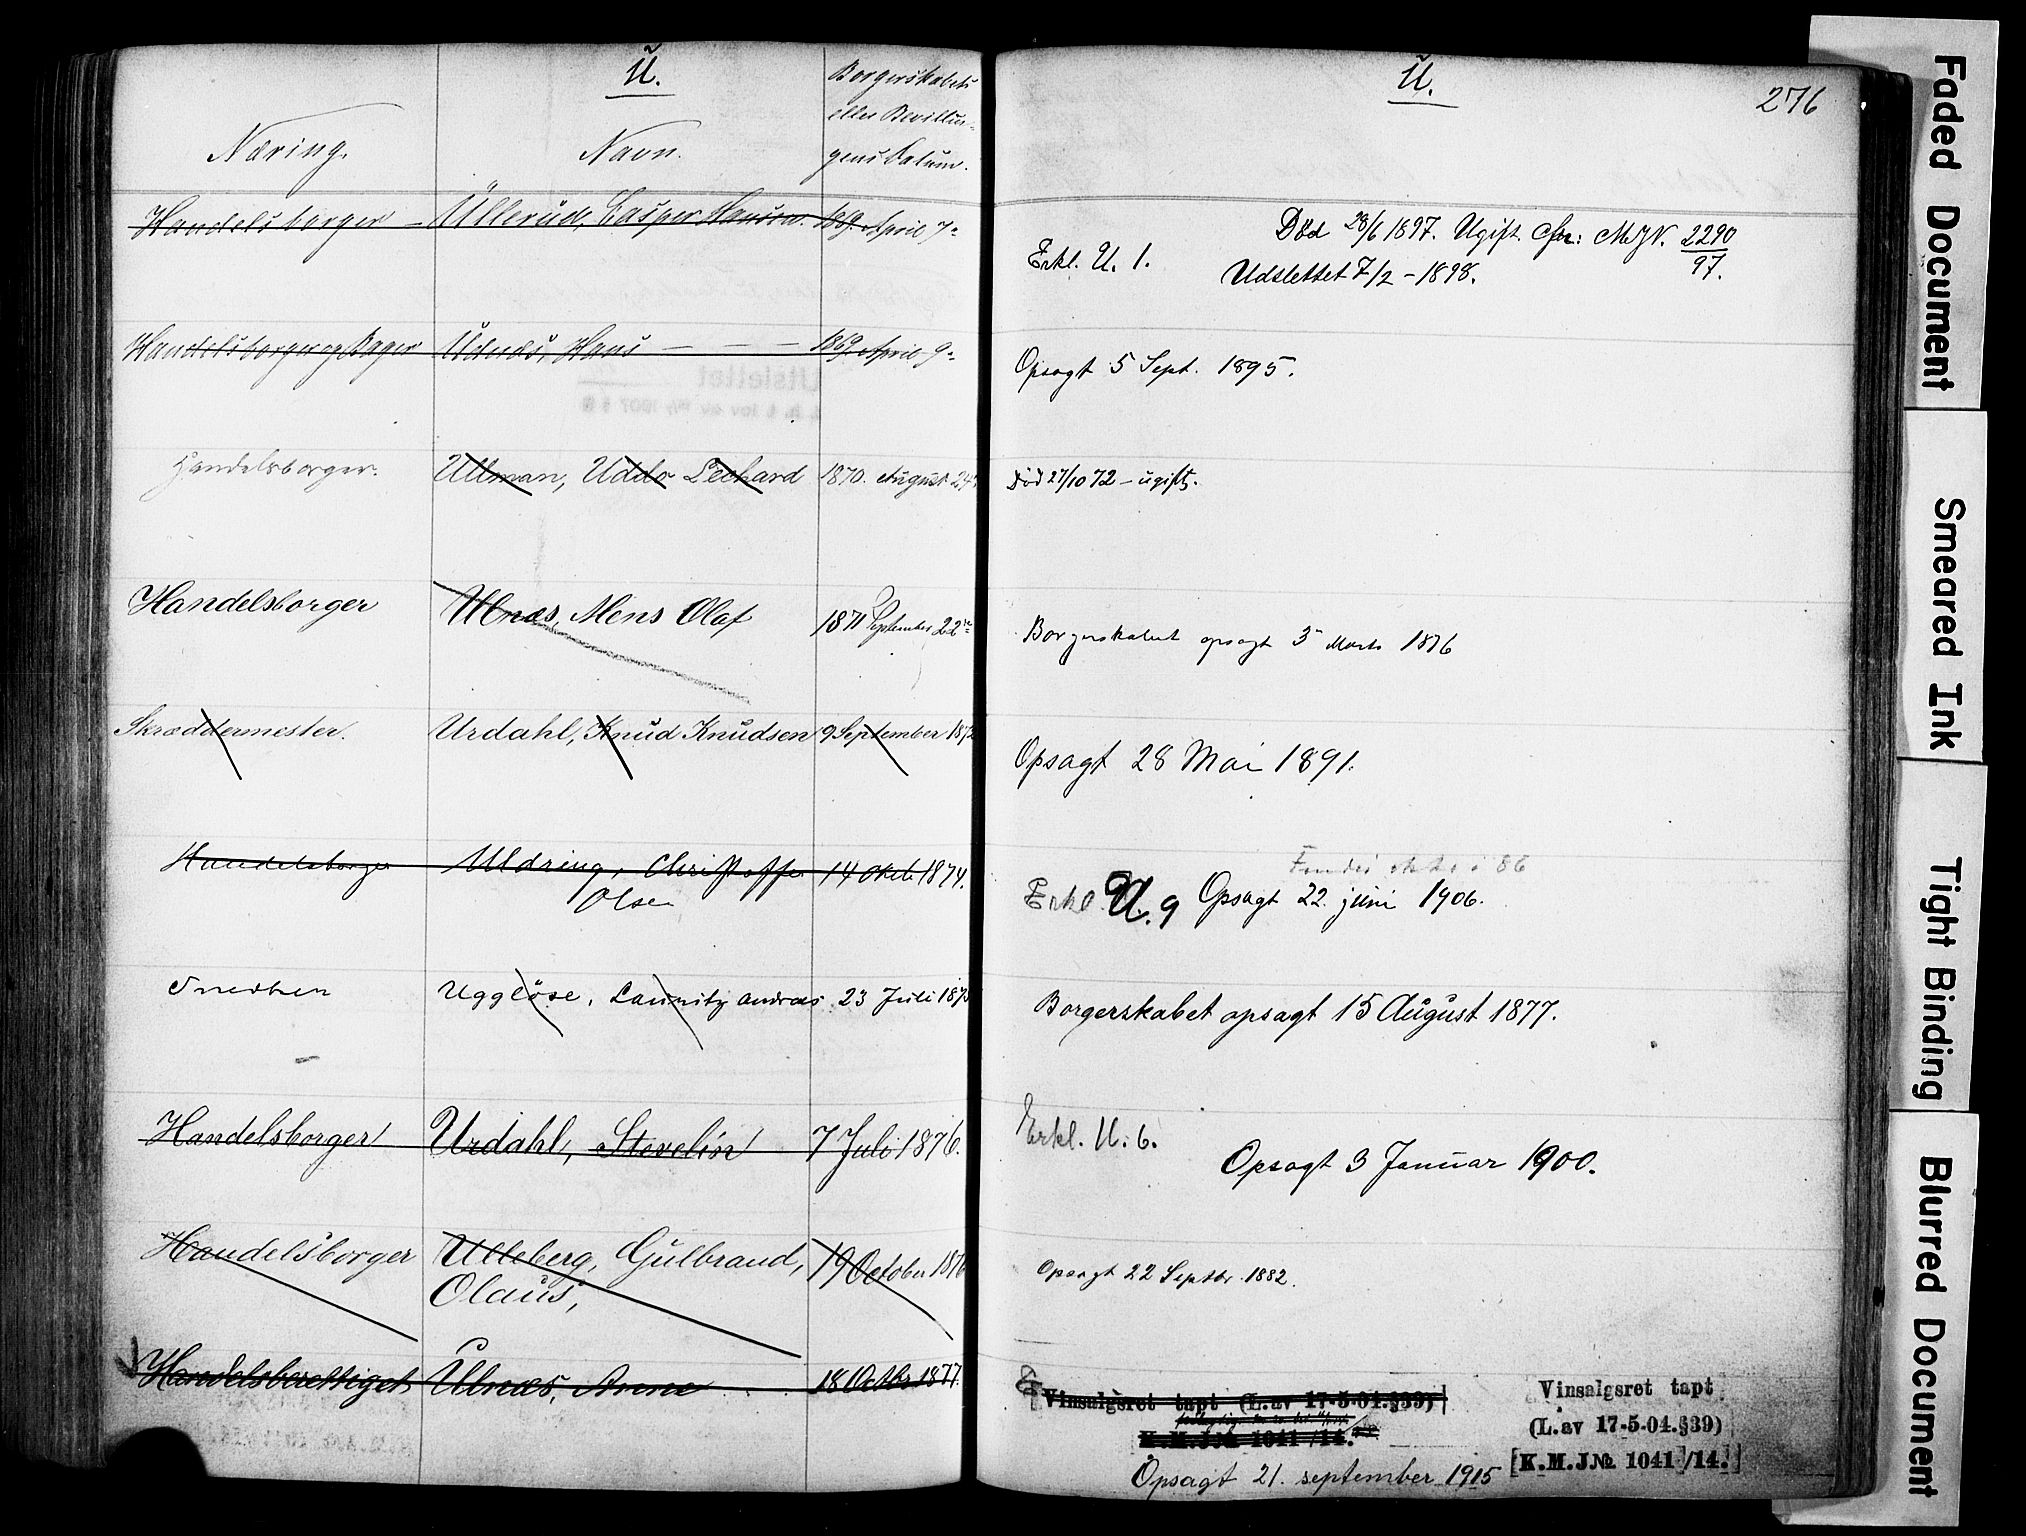 U.
Næring.
Navn.
Borgerskabets
eller Bevillin-
gens Datum.
Handelsborger Ullerud, Casper Hansen. 1869. April 7-
Handelsborger og Bager Udnæs, Hans - - - 1869. April 9-
Handelsborger. Ullman, Uddo Lechard 1870. August 24
Handelsborger Ulnæs, Mens Olaf 1871 September 22
Skræddermester. Urdahl, Knud Knudsen 9 September 1872
Handelsborger Uldring, Christoffer 14 Oktb 1874.
Olsen
Snedker Ugglöse, Launitz Andreas 23 Juli 1875
Handelsborger Urdahl, Stevelin 7 Juli 1876.
Handelsborger Ulleberg, Gulbrand, 19 October 1876
Olaus,
Handelsberettiget Ulnæs, Anne 18 Octbr 1877.
U.
276
Død 28/6 1897. Ugift. Cfr: MJN. 2290
97.
Erkl. U. 1.
Udslettet 7/2 - 1898.
Opsagt 5 Sept. 1895.
Død 27/10 72 - ugift.
Borgerskabet opsagt 3 Marts 1876
Opsagt 28 Mai 1891.
i 86
Erkl. U. 9 Opsagt 22. juni 1906.
Borgerskabet opsagt 15 August 1877.
Erkl. U. 6.
Opsagt 3 Januar 1900.
Opsagt 22 Septbr. 1882.
Vinsalgsret tapt (L.av 17-5-04.§39)
K.M.J.№ 1041/14.
Vinsalgsret tapt
(L.av 17-5-04.§39)
[K.M.J.№ 1041/14.]
Opsagt 21. september 1915
Faded Document
Smeared Ink
Tight Binding
Blurred Document